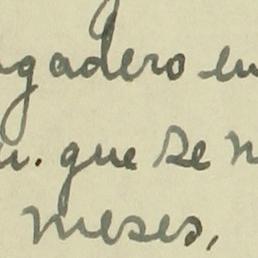 gadero en
. que se
meses,